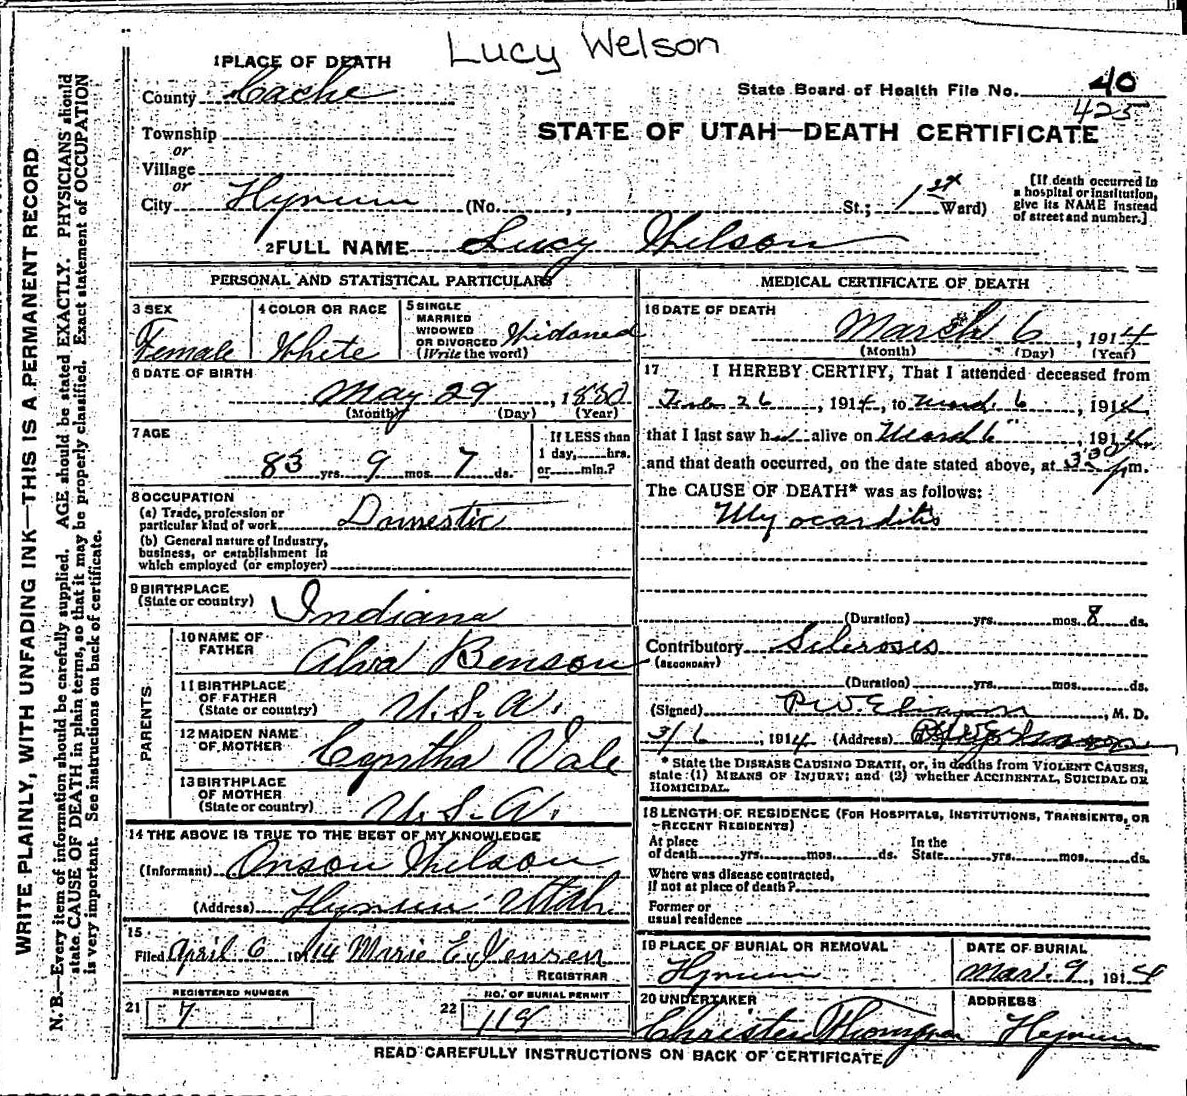 Lucy Welson
1 PLACE OF DEATH
County Cache
State Board of Health File No. 40
425
Township
or
Village
or
City Hyrum
STATE OF UTAH—DEATH CERTIFICATE
(No. , St.; 1st Ward)
[If death occurred in a hospital or institution, give its NAME instead of street and number.]
2 FULL NAME Lucy Wilson
PERSONAL AND STATISTICAL PARTICULARS
3 SEX
Female
4 COLOR OR RACE
White
5 SINGLE
MARRIED
WIDOWED
OR DIVORCED
(Write the word)
Widowed
6 DATE OF BIRTH
May 29, 1830
(Month) (Day) (Year)
7 AGE
83 yrs. 9 mos. 7 ds.
If LESS than
1 day, hrs.
or min.?
8 OCCUPATION
(a) Trade, profession or
particular kind of work Domestic
(b) General nature of Industry,
business, or establishment in
which employed (or employer)
9 BIRTHPLACE
(State or country) Indiana
PARENTS
10 NAME OF
FATHER Alva Benson
11 BIRTHPLACE
OF FATHER
(State or country) U.S.A.
12 MAIDEN NAME
OF MOTHER Cyntha Vale
13 BIRTHPLACE
OF MOTHER
(State or country) U.S.A.
14 THE ABOVE IS TRUE TO THE BEST OF MY KNOWLEDGE
(Informant) Orson Wilson
(Address) Hyrum Utah
15
Filed April 6 1914 Marie E. Jensen
REGISTRAR
REGISTERED NUMBER
21 7
NO. OF BURIAL PERMIT
22 119
MEDICAL CERTIFICATE OF DEATH
16 DATE OF DEATH
March 6, 1914
(Month) (Day) (Year)
17 I HEREBY CERTIFY, That I attended deceased from
26, 1914, to March 6, 1914
that I last saw h alive on March 6", 1914,
and that death occurred, on the date stated above, at 3:30 p m.
The CAUSE OF DEATH* was as follows:
Myocarditis
(Duration) yrs. mos. 8 ds.
Contributory Sclerosis
(SECONDARY)
(Duration) yrs. mos. ds.
(Signed) , M. D.
3/6, 1914 (Address)
* State the DISEASE CAUSING DEATH, or, in deaths from VIOLENT CAUSES,
state (1) MEANS OF INJURY; and (2) whether ACCIDENTAL, SUICIDAL OR
HOMICIDAL.
18 LENGTH OF RESIDENCE (FOR HOSPITALS, INSTITUTIONS, TRANSIENTS, OR
RECENT RESIDENTS)
At place
of death yrs. mos. ds.
In the
State yrs. mos. ds.
Where was disease contracted,
if not at place of death?
Former or
usual residence
19 PLACE OF BURIAL OR REMOVAL
Hyrum
DATE OF BURIAL
Mar. 9, 1914
20 UNDERTAKER
Christen Thompson
ADDRESS
Hyrum
READ CAREFULLY INSTRUCTIONS ON BACK OF CERTIFICATE
WRITE PLAINLY, WITH UNFADING INK—THIS IS A PERMANENT RECORD
N. B.—Every item of information should be carefully supplied. AGE should be stated EXACTLY. PHYSICIANS should
state CAUSE OF DEATH in plain terms, so that it may be properly classified. Exact statement of OCCUPATION
is very important. See instructions on back of certificate.